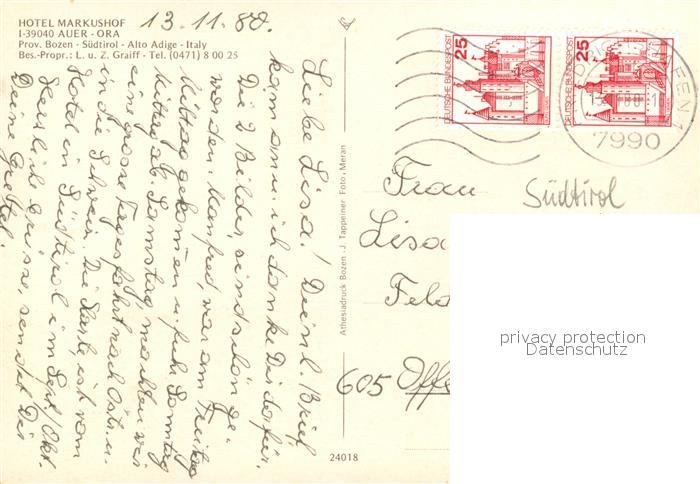 HOTEL MARKUSHOF
I-39040 AUER - ORA
Prov. Bozen - Südtirol - Alto Adige - Italy
Bes.-Propr.: L. u. Z. Graiff - Tel. (0471) 8 00 25
13.11.80.
Liebe Lisa! Dein l. Brief
kam an u. ich danke Dir dafür.
Die 2 Bilder, sind schön ge-
worden. Manfred, war am Freitag
Mittag gekommen u. fuhr Sonntag
Mittag ab. Samstag, machten wir
eine grosse Tagesfahrt nach Östr. u.
in die Schweiz. Die Karte, ist vom
Hotel in Südtirol im Sept/Okt.
Herzliche Grüsse, sendet Dir
Deine Gretel.
Athesiadruck Bozen - J. Tappeiner Foto, Meran
24018
25
DEUTSCHE BUNDESPOST
25
DEUTSCHE BUNDESPOST
7990
Südtirol
Frau
Lisa
Feld
605 Offe
privacy protection
Datenschutz